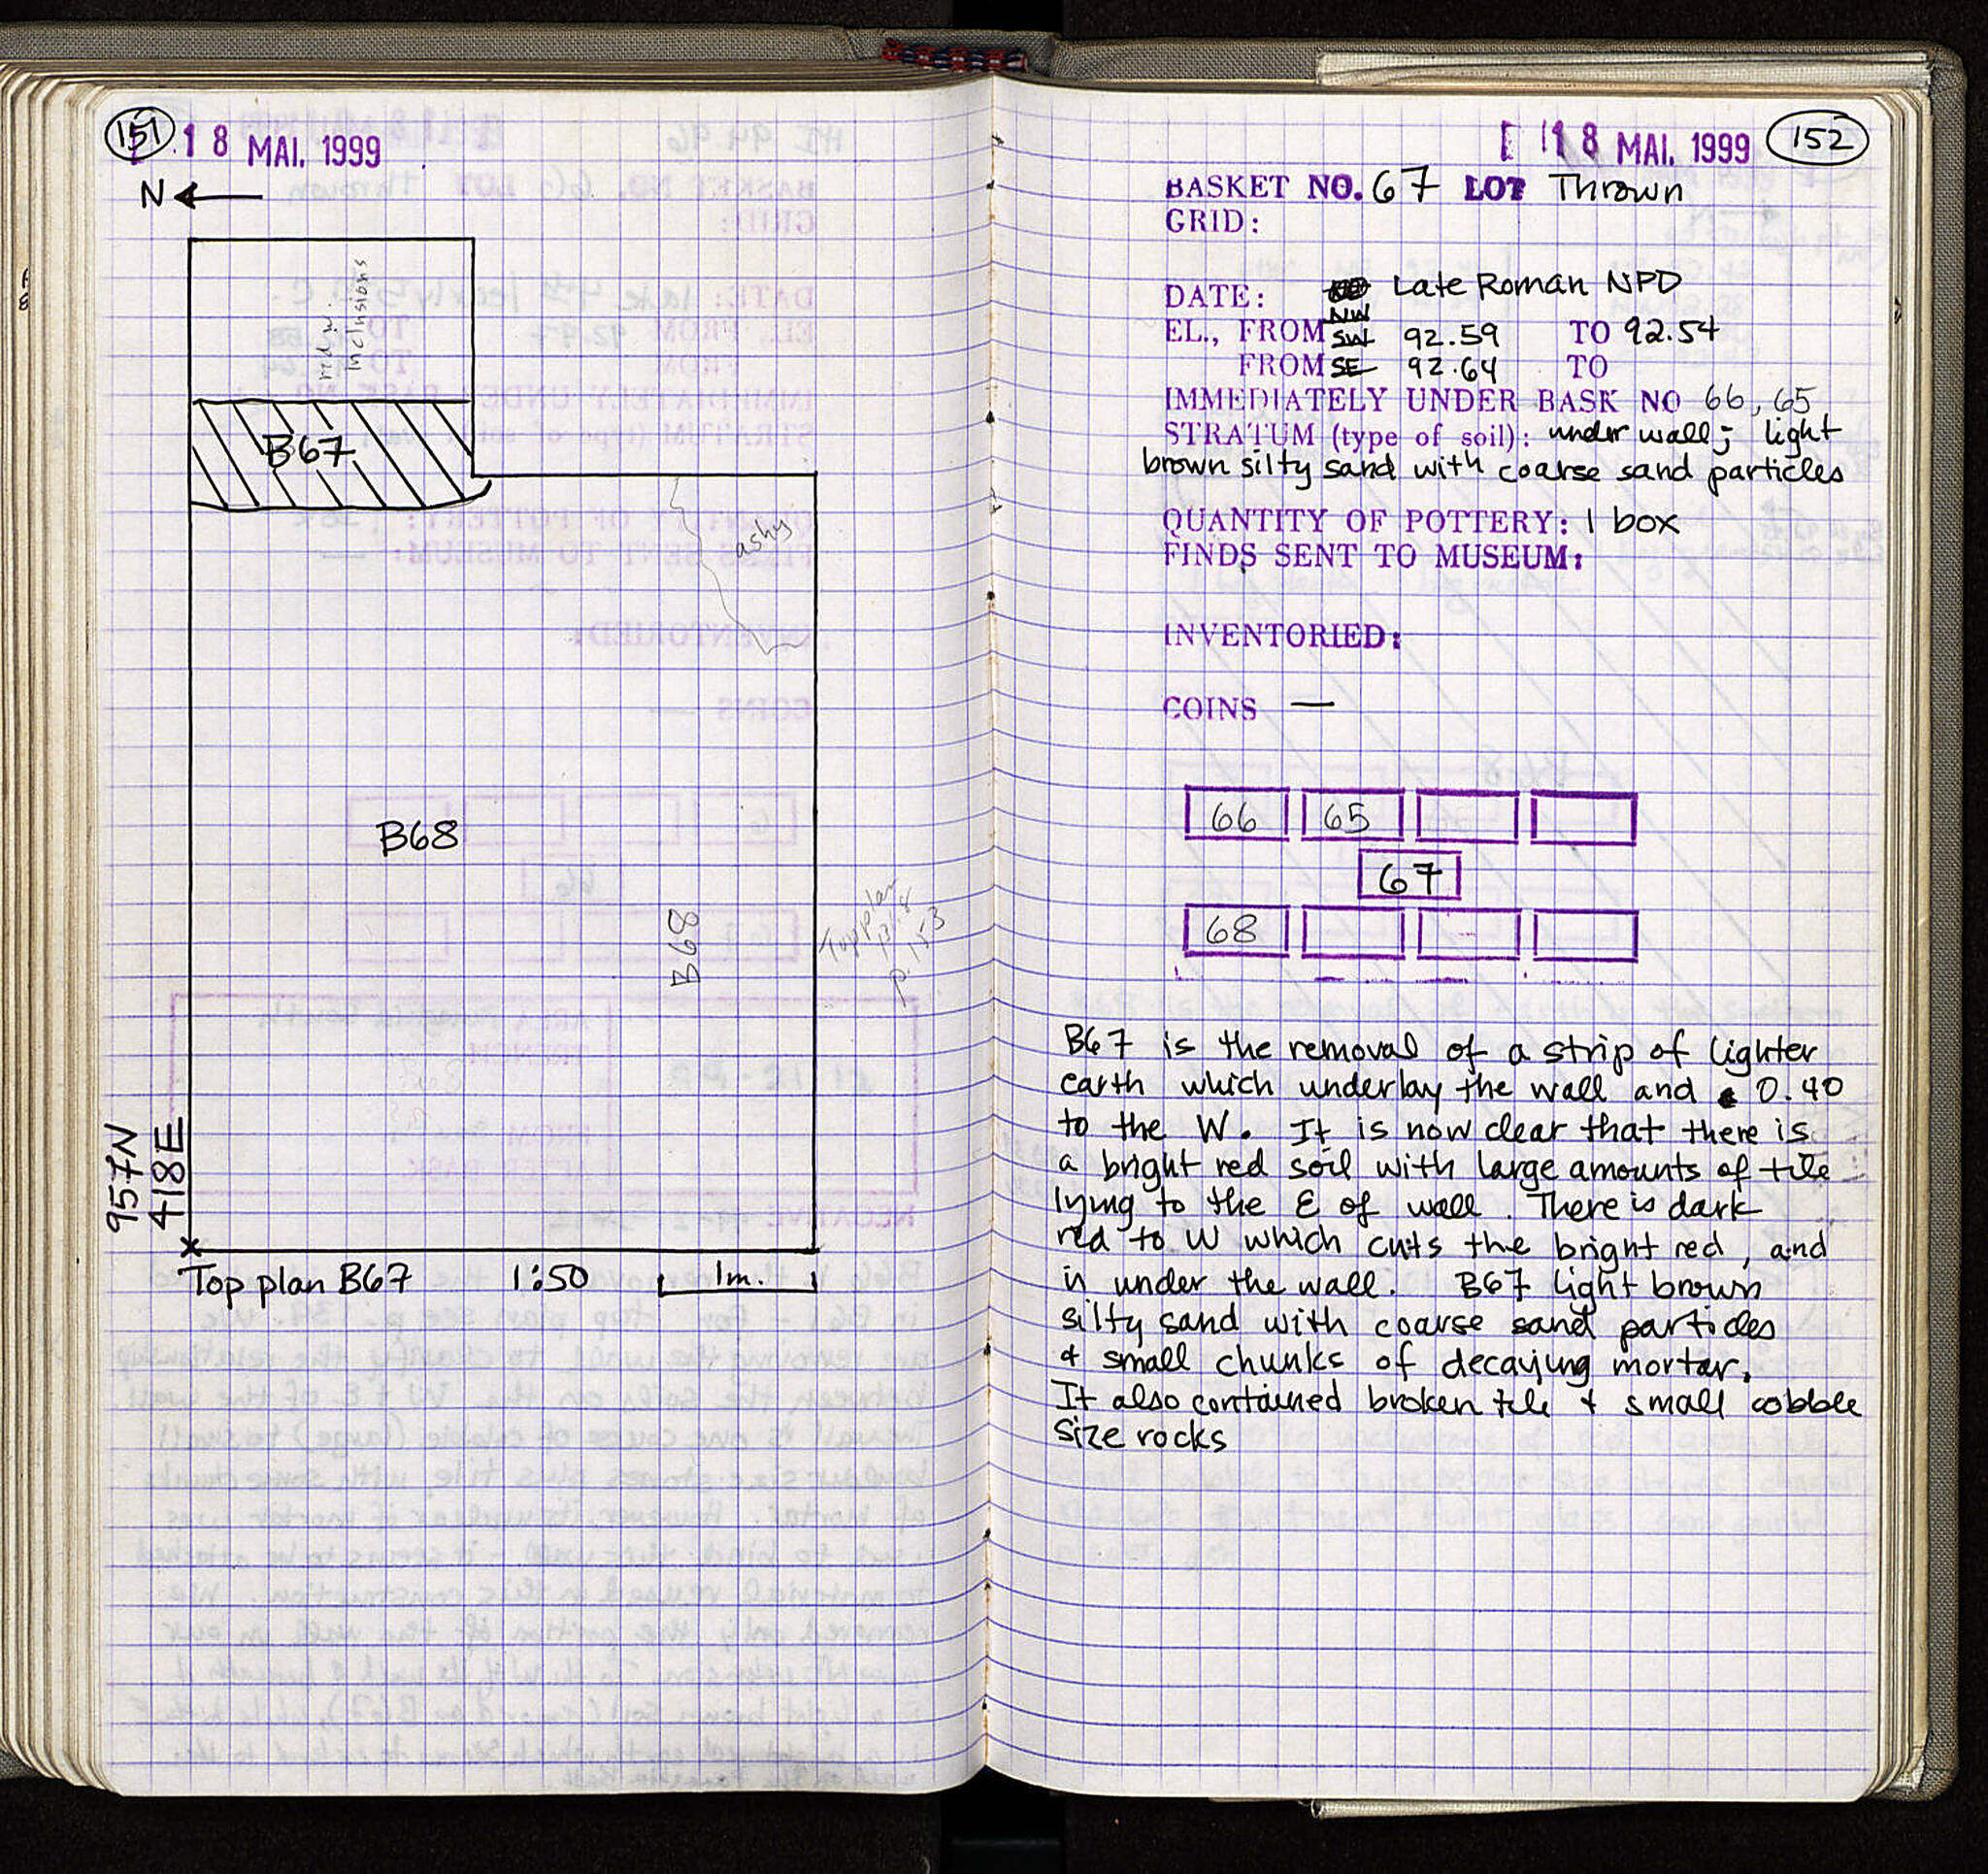 151
18 MAI. 1999
N
red w.
inclusions
B67
ashy
B68
B68
Top plan
p. 153
957N
418E
Top plan B67 1:50 1m.
18 MAI. 1999 152
BASKET NO. 67 LOT Thrown
GRID:
DATE: Late Roman NPD
NW
EL., FROM SW 92.59 TO 92.54
FROM SE 92.64 TO
IMMEDIATELY UNDER BASK NO 66, 65
STRATUM (type of soil): under wall; light
brown silty sand with coarse sand particles
QUANTITY OF POTTERY: 1 box
FINDS SENT TO MUSEUM:
INVENTORIED:
COINS —
66 65
67
68
B67 is the removal of a strip of lighter
earth which underlay the wall and 0.40
to the W. It is now clear that there is
a bright red soil with large amounts of tile
lying to the E of wall. There is dark
red to W which cuts the bright red, and
is under the wall. B67 light brown
silty sand with coarse sand particles
& small chunks of decaying mortar.
It also contained broken tile & small cobble
size rocks